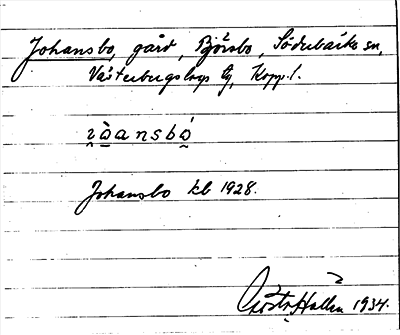 Johansbo, gård, Björsbo, Söderbärke sn,
Västerbergslags tg, Kopp. l.
ɩ̀òansbó
Johansbo kb 1928.
Gösta Hallén 1934.